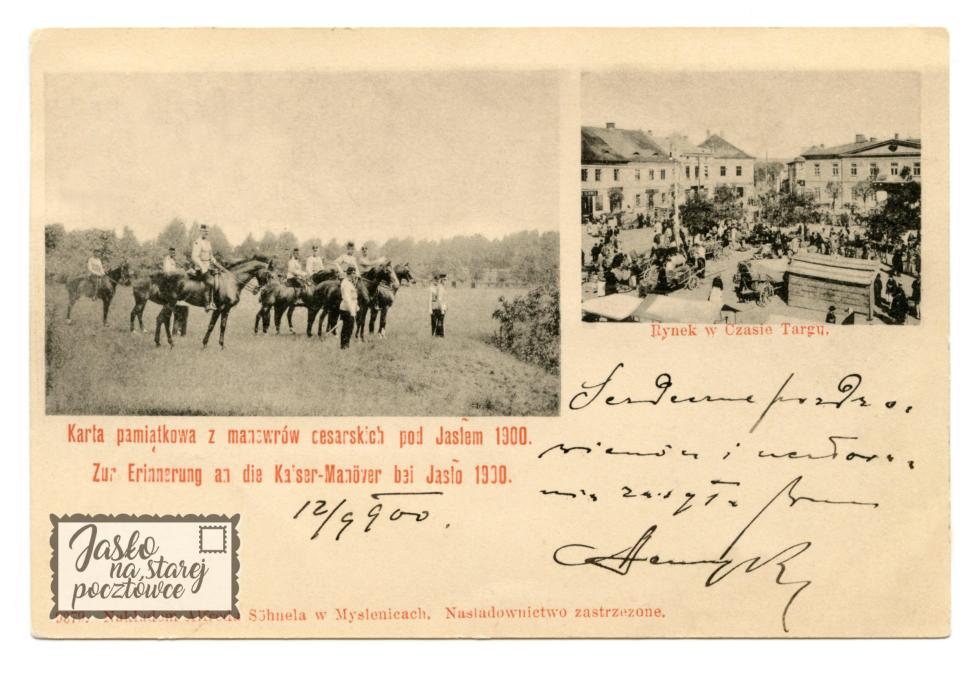 Rynek w Czasie Targu.
Karta pamiątkowa z manewrów cesarskich pod Jasłem 1900.
Zur Erinnerung an die Kaiser-Manöver bei Jasło 1900.
Serdeczne pozdro
wienia i ucałowa
nia zasyła
12/9 900.
Jasło
na starej
pocztówce
Nakładem Alfreda Söhnela w Myslenicach. Nasladownictwo zastrzezone.